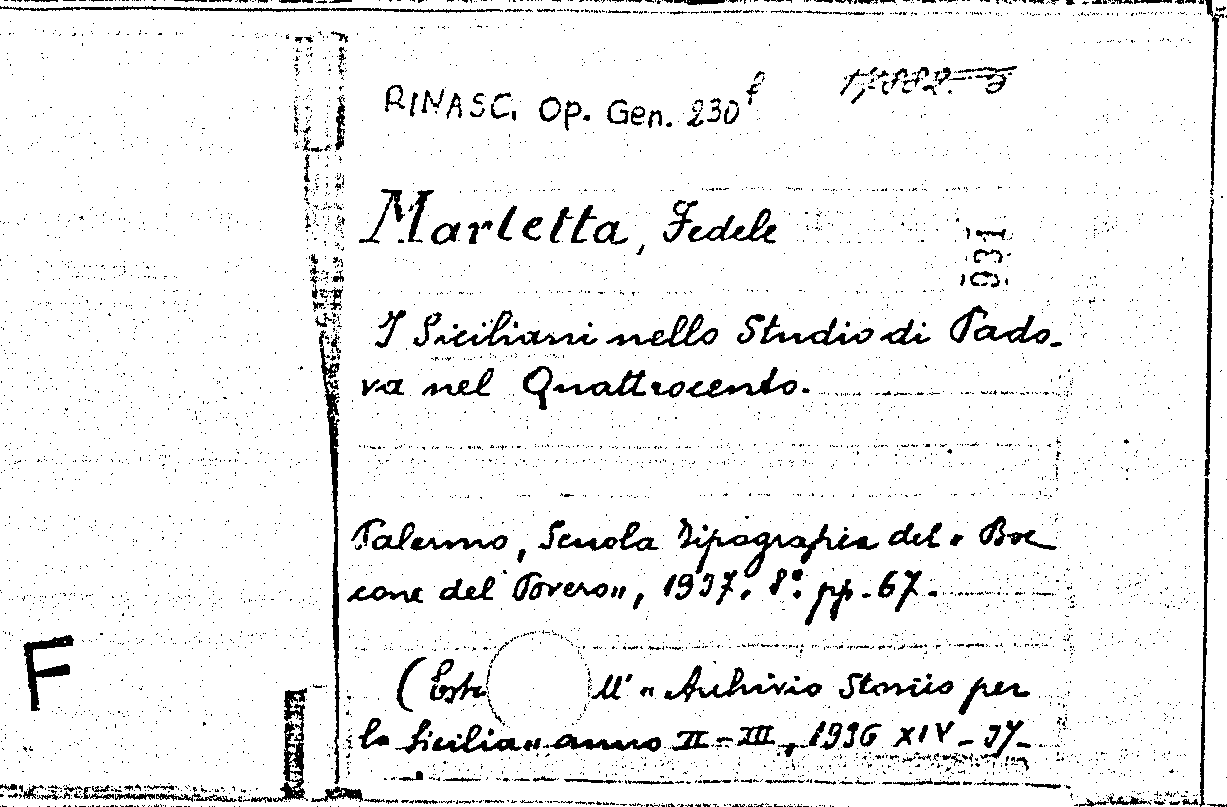 RINASC. Op. Gen. 230 f
Marletta, Fedele
931
I Siciliani nello Studio di Pado-
va nel Quattrocento.
Palermo, Scuola Tipografica del "Boc
cone del Povero", 1937. 8° pp. 67.
(Estr ll' "Archivio Storico per
la Sicilia" anno II-III, 1936 XIV - 37-
F